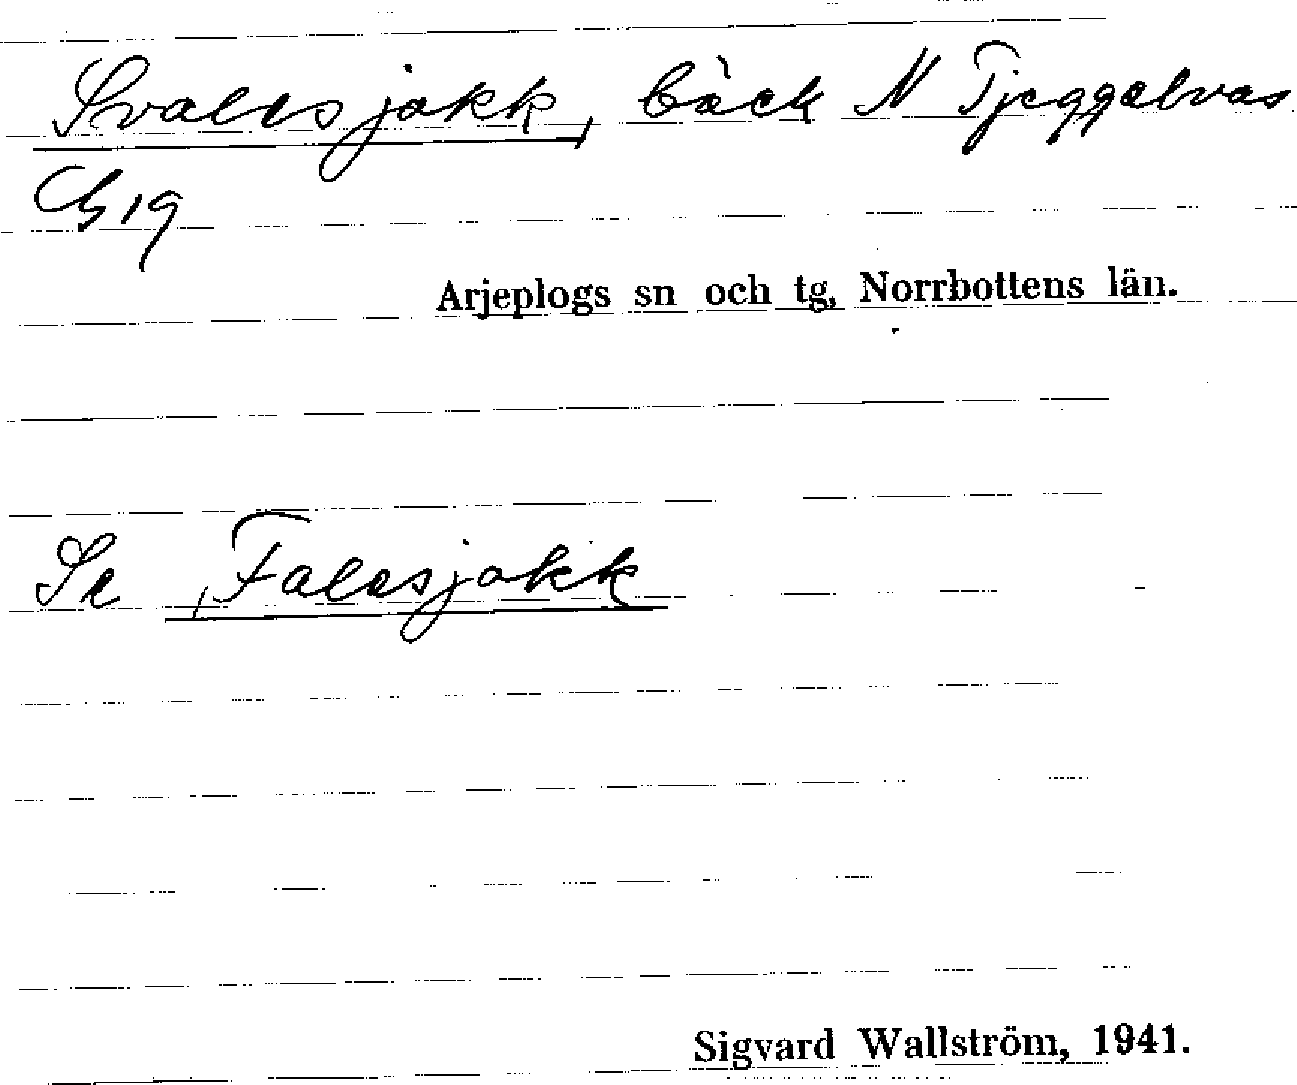 Svalesjokk, bäck N Tjeggelvas
G19
Arjeplogs sn och tg, Norrbottens län.
Se Falesjokk
Sigvard Wallström, 1941.